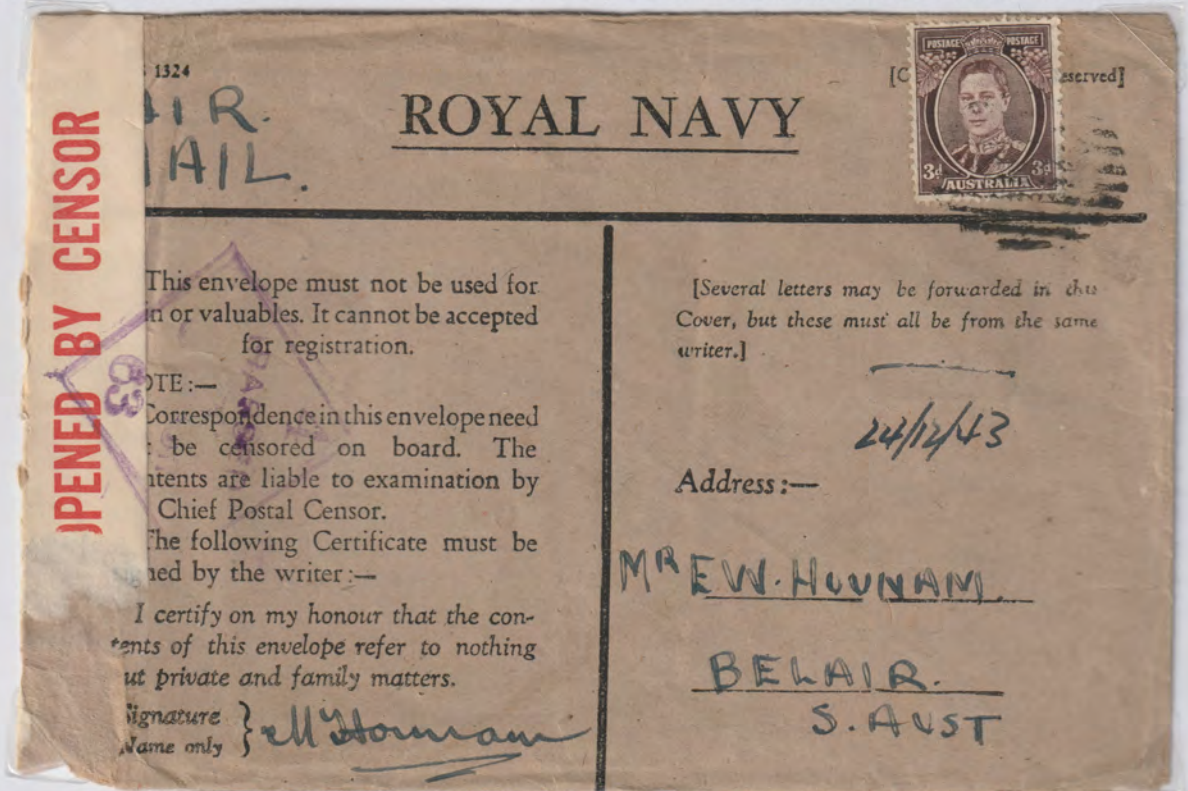 1324
[C eserved]
AIR.
MAIL.
ROYAL NAVY
POSTAGE POSTAGE
3d 3d
AUSTRALIA
OPENED BY CENSOR
This envelope must not be used for
in or valuables. It cannot be accepted
for registration.
OTE :—
Correspondence in this envelope need
be censored on board. The
ntents are liable to examination by
Chief Postal Censor.
The following Certificate must be
ned by the writer :—
I certify on my honour that the con-
tents of this envelope refer to nothing
ut private and family matters.
Signature
Name only } Hounam
63
[Several letters may be forwarded in this
Cover, but these must all be from the same
writer.]
24/12/43
Address :—
MR E W. HOUNAM.
BELAIR.
S. AUST